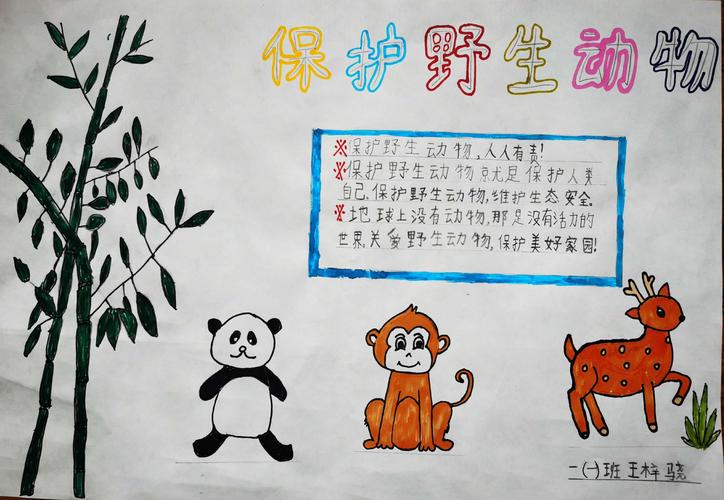 保护野生动物
※保护野生动物,人人有责!
※保护野生动物就是保护人类
自己,保护野生动物,维护生态安全.
※地球上没有动物,那是没有活力的
世界,关爱野生动物,保护美好家园!
一(一)班王梓骁